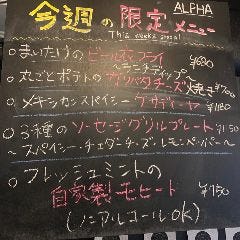 今週の限定メニュー ALPHA
This week's special
○まいたけのビール衣フライ ¥680
〜ミニディップ〜
○丸ごとポテトのラクレットチーズ焼き ¥700
○メキシカンスパイシーケサディーヤ ¥1180
○3種のソーセージグリルプレート
〜スパイシー・チェダーチーズ・レモンペッパー〜
○フレッシュミントの
自家製モヒート ¥750
(ノンアルコールOK)